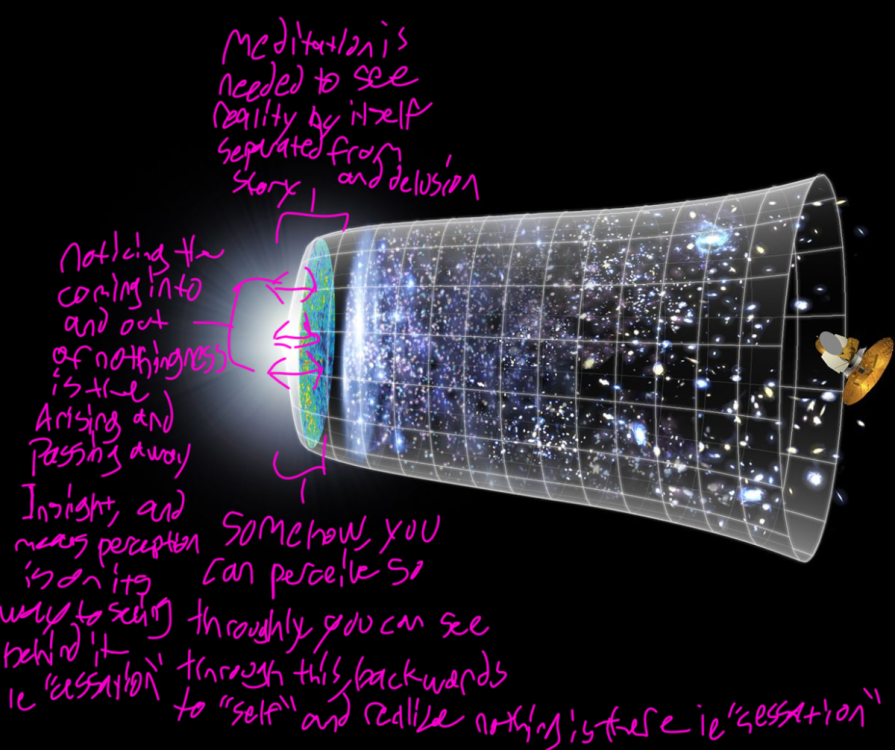 Meditation is
needed to see
reality by itself
separated from
story and delusion
noticing the
coming into
and out
of nothingness
is the
Arising and
Passing away
Insight, and
means perception
is on its
way to seeing
behind it
ie "cessation"
Somehow, you
can perceive so
throughly you can see
through this, backwards
to "self" and realize nothing is there ie "sessation"